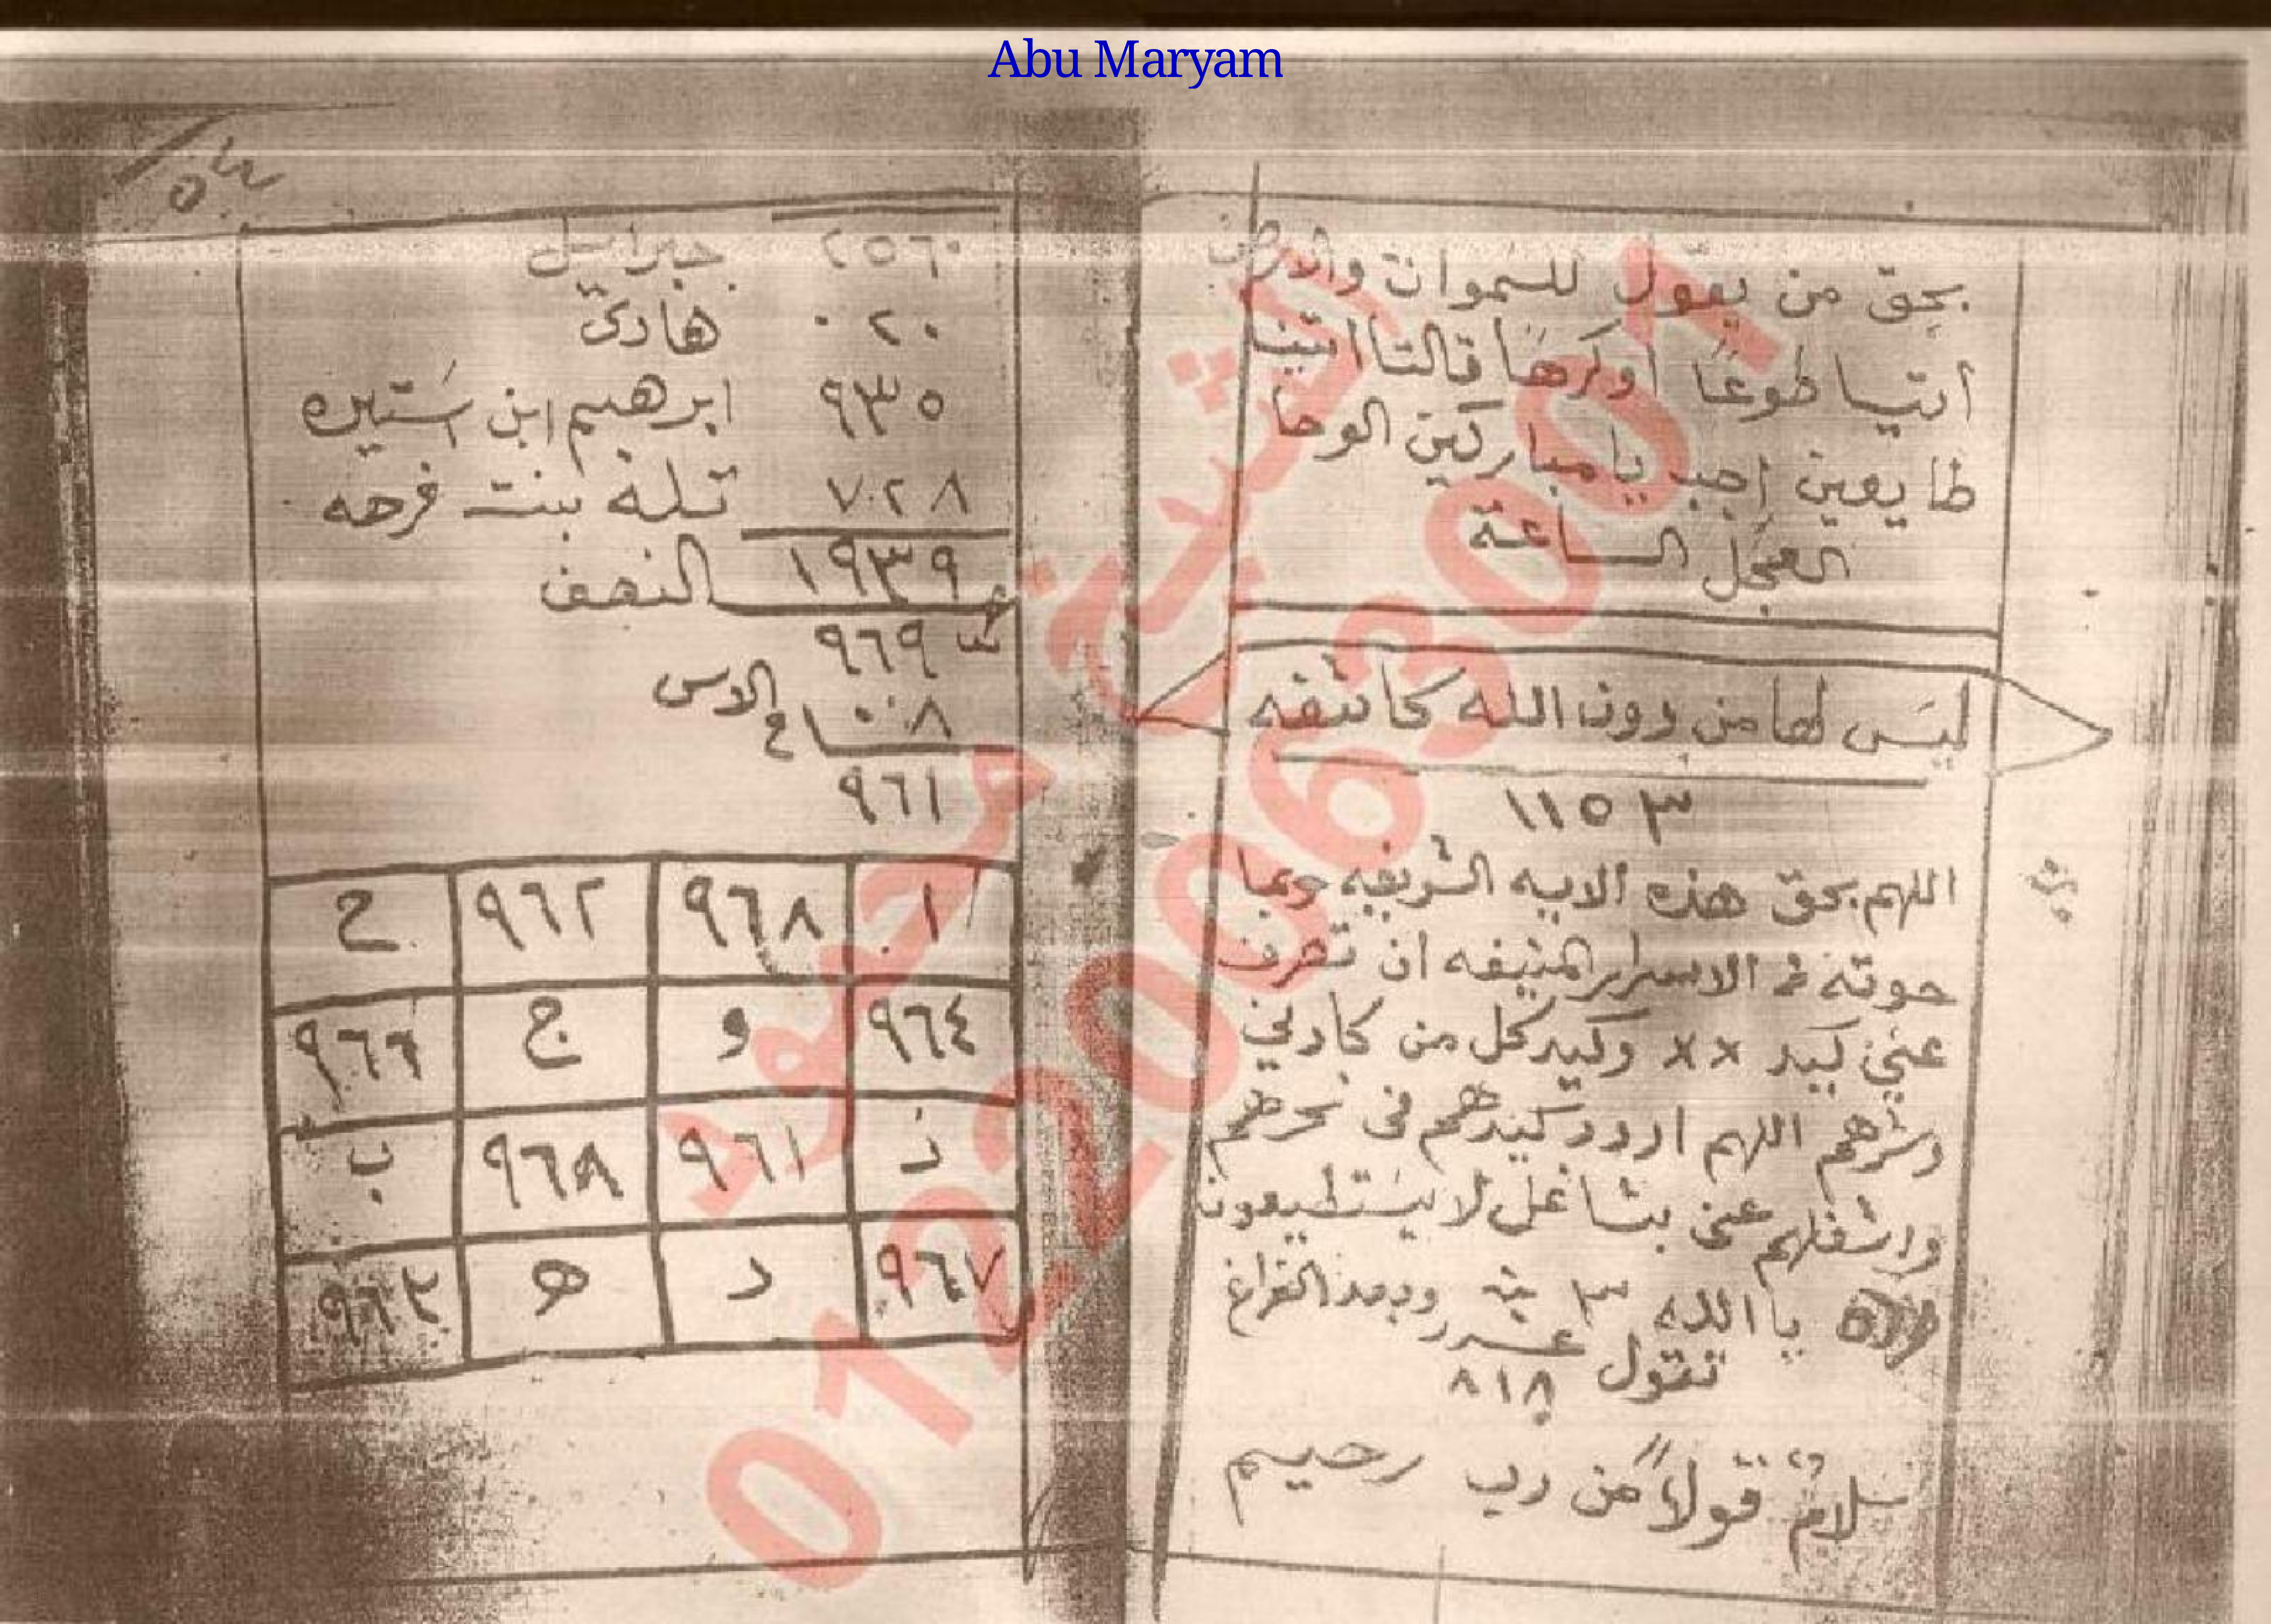 Abu Maryam
بحق من يقول للسموات والارض
ائتيا طوعًا اوكرهًا قالتا اتينا
طايعين اجب يا مباركين الوحا
العجل الساعة
ليس لها من دون الله كاشفه
١١٥٣
اللهم بحق هذه الايه الشريفه وبما
حوته من الاسرار المنيفه ان تصرف
عني كيد ×× وكيد كل من كادني
وشرهم اللهم اردد كيدهم في نحرهم
واشغلهم عني بشاغل لا يستطيعون
يا الله ٣ وبعد الفراغ
تقول عدد
٨١٨
سلامٌ قولاً من رب رحيم
٢٥٦٠ جبرائيل
٠٢٠ هادي
٩٣٥ ابرهيم ابن استيره
٧٠٢٨ تله بنت فرحه
١٩٣٩ النصف
٩٦٩
٠٠٨ الاس
٩٦١
ا ٩٦٨ ٩٦٢ ح
٩٦٤ و ج ٩٦٦
ز ٩٦١ ٩٦٨ ب
٩٦٧ د ه ٩٦٣
الشيخ محمود
01220063001